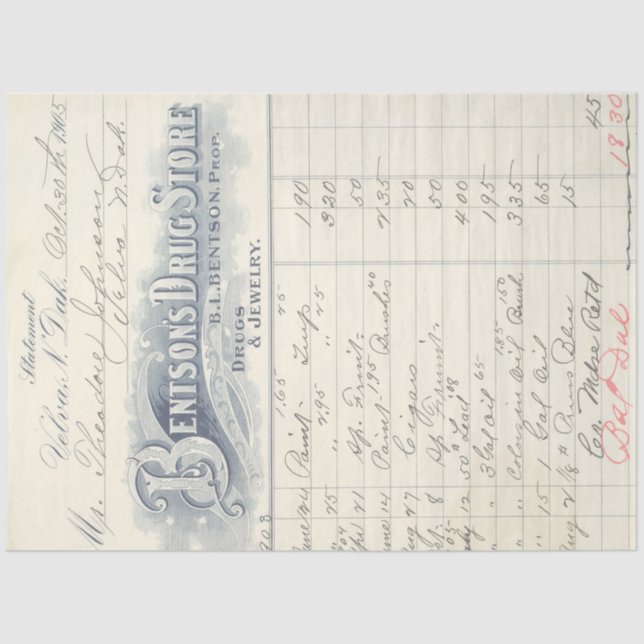 Statement
Velva, N. Dak. Oct. 30th 1905
Mr. Theodore Johnson
Velva N. Dak.
BENTSON'S DRUG STORE
B.L. BENTSON, PROP.
DRUGS
& JEWELRY.
903
une 24 Paint 1.65 Turp 25 190
" 25 " 2.95 " 25 320
904
21 Sp. Frmt. 50
une 14 Paint 1.95 Brushes 40 235
ug 27 Cigars 20
8 Sp. Frmnt. 50
05
12 50# Lead 08 400
" " 3 Gal Oil 65 195
" " Coloring Oil 1.85 Brush 150 335
" 15 1 Gal Oil 65
ug 2 1/8 # Prus Blue 15
Cr. Mdse Retd 45
Bal Due 18.30